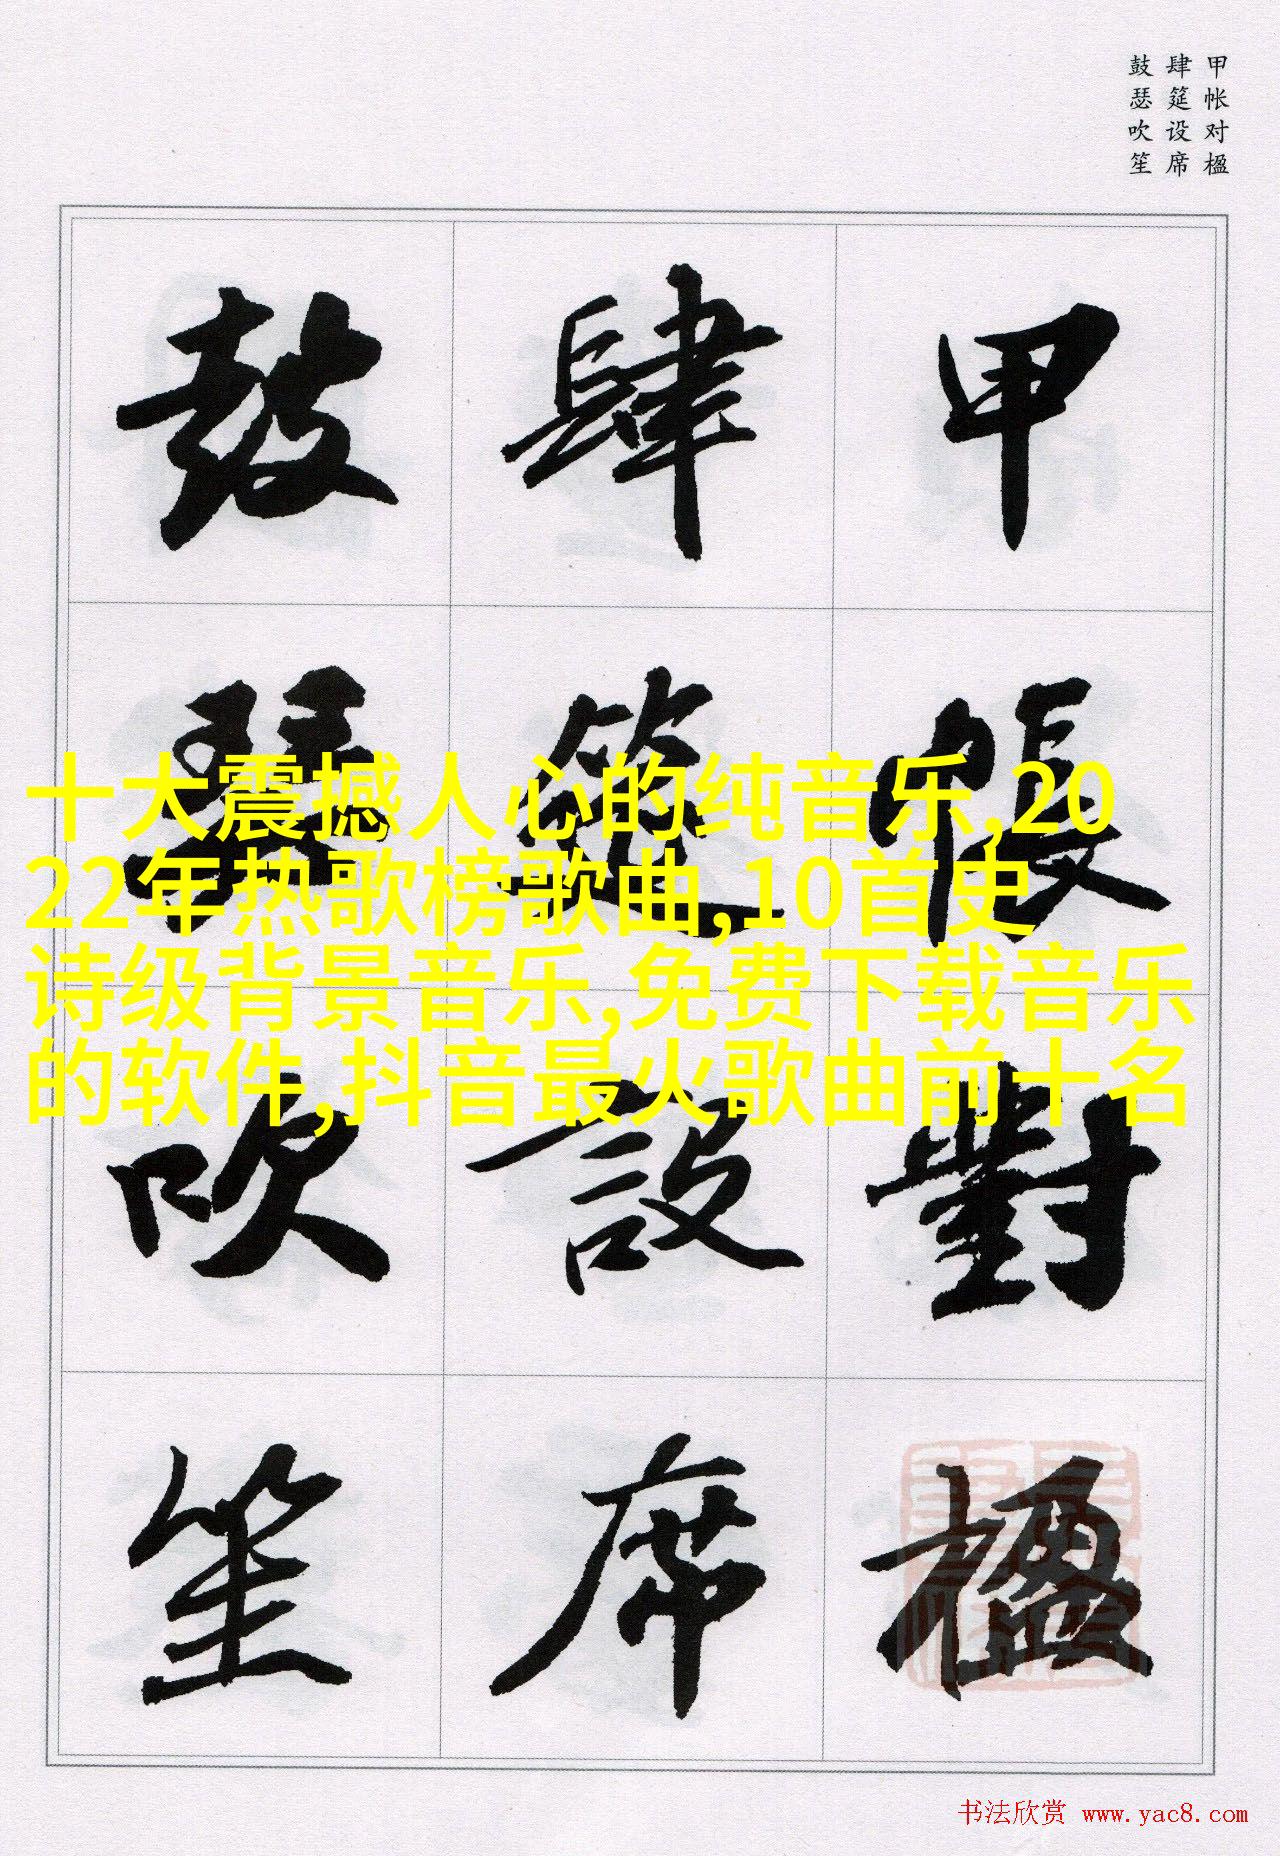 甲帐对楹
肆筵设席
鼓瑟吹笙
甲帳對楹
肆筵設席
鼓瑟吹笙
十大震撼人心的纯音乐,20
22年热歌榜歌曲,10首史
诗级背景音乐,免费下载音乐
的软件,抖音最火歌曲前十名
书法欣赏 www.yac8.com